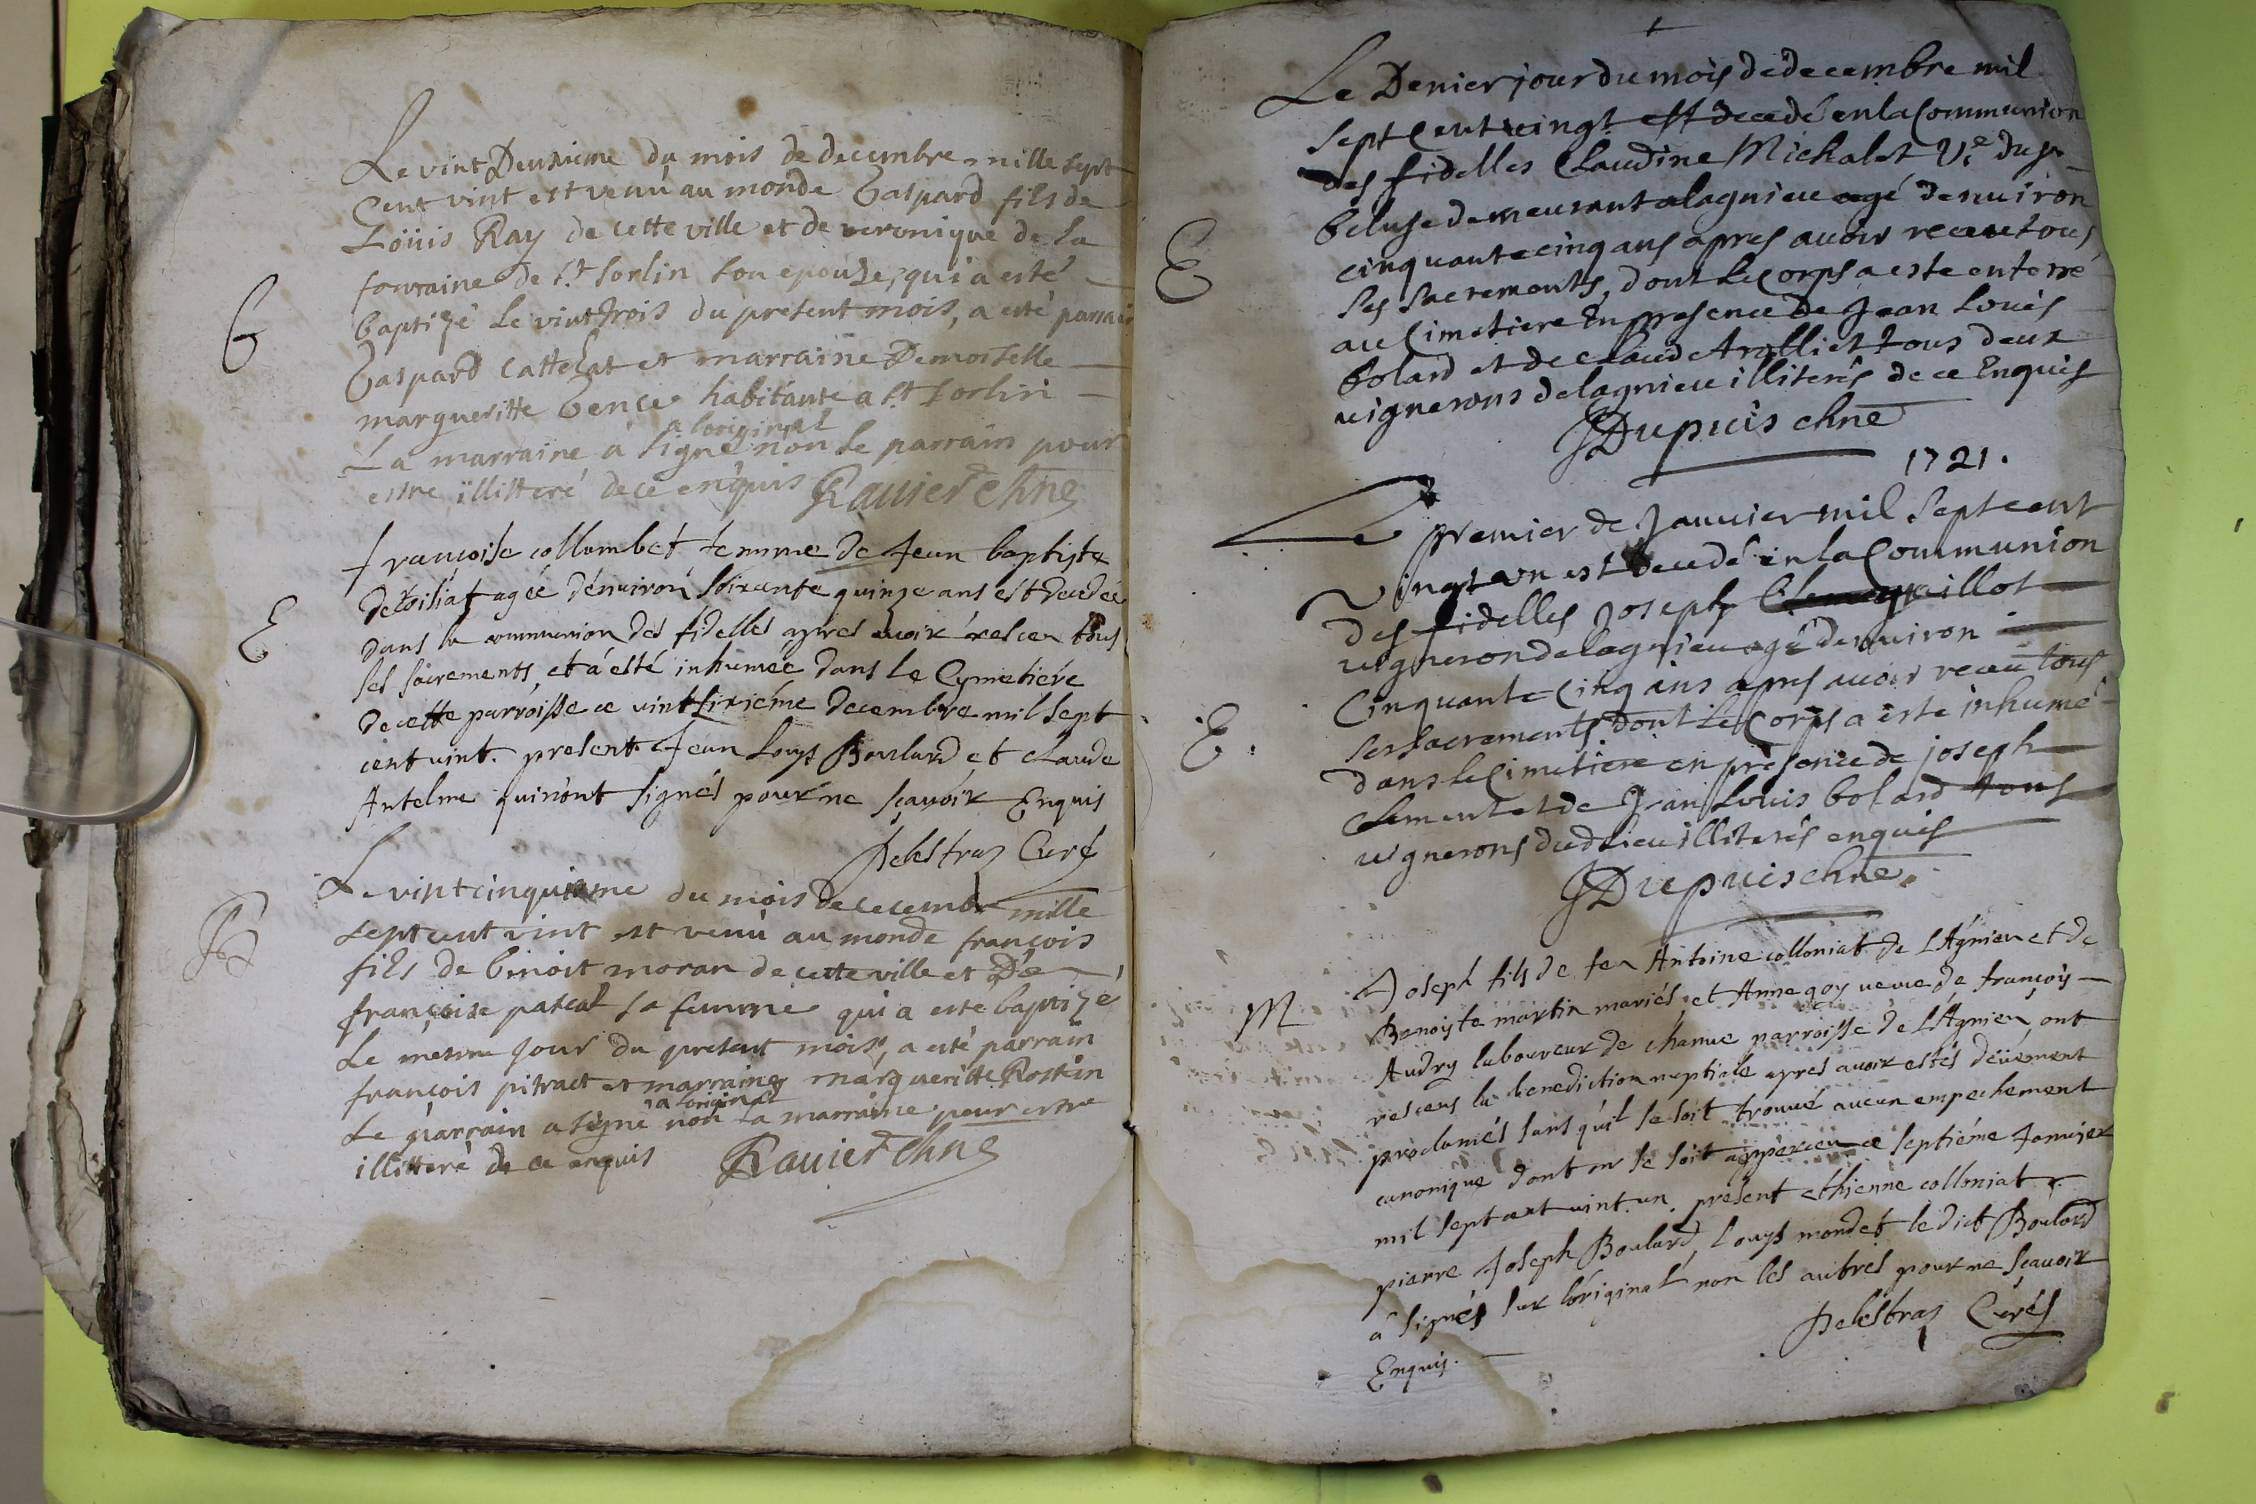 Le vint Deuxieme du mois de decembre mille sept
Cent vint est venu au monde Gaspard fils de
Loüis Ray de cette ville et de veronique de la
fontaine de st sorlin son epouze, qui a esté
B
baptizé le vint trois du present mois, a esté parrain
Gaspard Cattelat et marraine Demoiselle
margueritte Gence habitante a st sorlin
a loriginal
La marraine a signé non le parrain pour
estre illitteré de ce enquis Ravier chne
françoise collombet femme de Jean baptiste
agée d'environ soixante quinze ans est decedée
E
dans la communion des fidelles apres avoir resceu tous
ses sacrements, et a esté inhumée dans le Cymetiére
de cette parroisse ce vintsixiéme decembre mil sept
cent vint. present Jean Louys Boulard et claude
Antelme qui n'ont signés pour ne sçavoir Enquis
Delestraz Curé
Le vint cinquieme du mois de decembre mille
B
sept cent vint est venu au monde françois
fils de binoit moran de cette ville et De
françoise pascal sa femme qui a esté baptizé
le mesme jour du present mois, a esté parrain
françois pitract et marraine margueritte Rostin
a loriginal
le parrain a signé non la marraine pour estre
illitteré de ce enquis Ravier chne
Le Denier jour du mois de decembre mil
sept Cent vingt est decedé en la Communion
des fidelles Claudine Michalet Ve du sr
E
beluse demeurant a lagnieu agé denuiron
cinquante cinq ans apres auoir receu tous
ses sacrements, dont le Corps a este enterré
au Cimetiere En presence de Jean Louis
bolard et de claude tous deux
uignerons de lagnieu illiterés de ce Enquis
JDupuis chne
1721.
Le premier de Januier mil sept cent
Vingt un est decedé en la Communion
des fidelles Joseph
uigneron de lagnieu agé denuiron
E.
Cinquante Cinq ans apres auoir receu tous
ses sacrements dont le Corps a este inhumé
dans le Cimetiere en presence de joseph
Clement et de Jean Louis bolard tous
uignerons dud lieu illiterés enquis
JDupuis chne.
M
Joseph fils de feu Antoine colloniat de LAgnieu et de
Benoiste martin mariés, et Anne goy veuve de françois
Audry laboureur de chanue parroisse de LAgnieu, ont
resceus la benediction nuptiale apres avoir estés deüement
proclamés sans qu'il se soit trouvé aucun empechement
canonique dont on se soit apperceu ce septiéme Janvier
mil sept cent vint un. present ethienne colloniat
piarre Joseph Boulard, Louys mondet le dict Boulard
a signés sur l'original non les autres pour ne sçavoir
Enquis.
Delestraz Curés